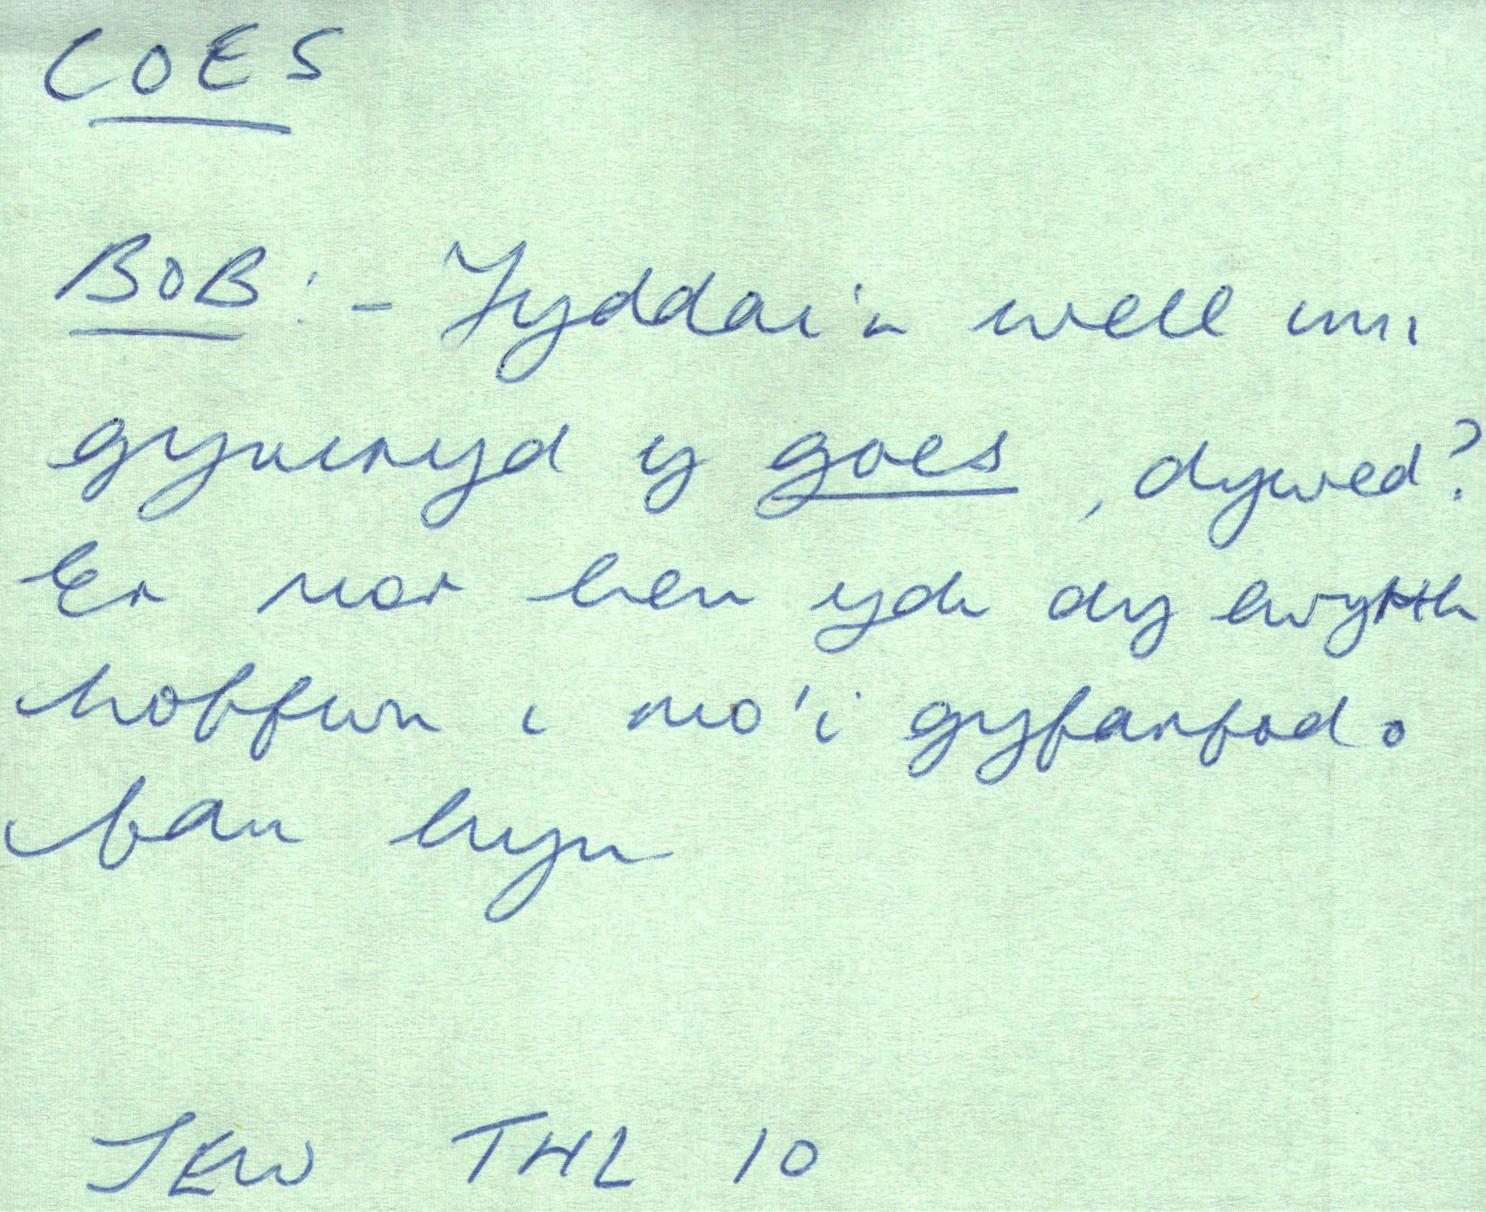 COES
BOB :- Fyddai'n well inni
gymryd y goes, dywed?
Er mor hen ydi dy ewyrth
hoffwn i mo'i gyfarfod o
ffan hyn
JEW THL 10